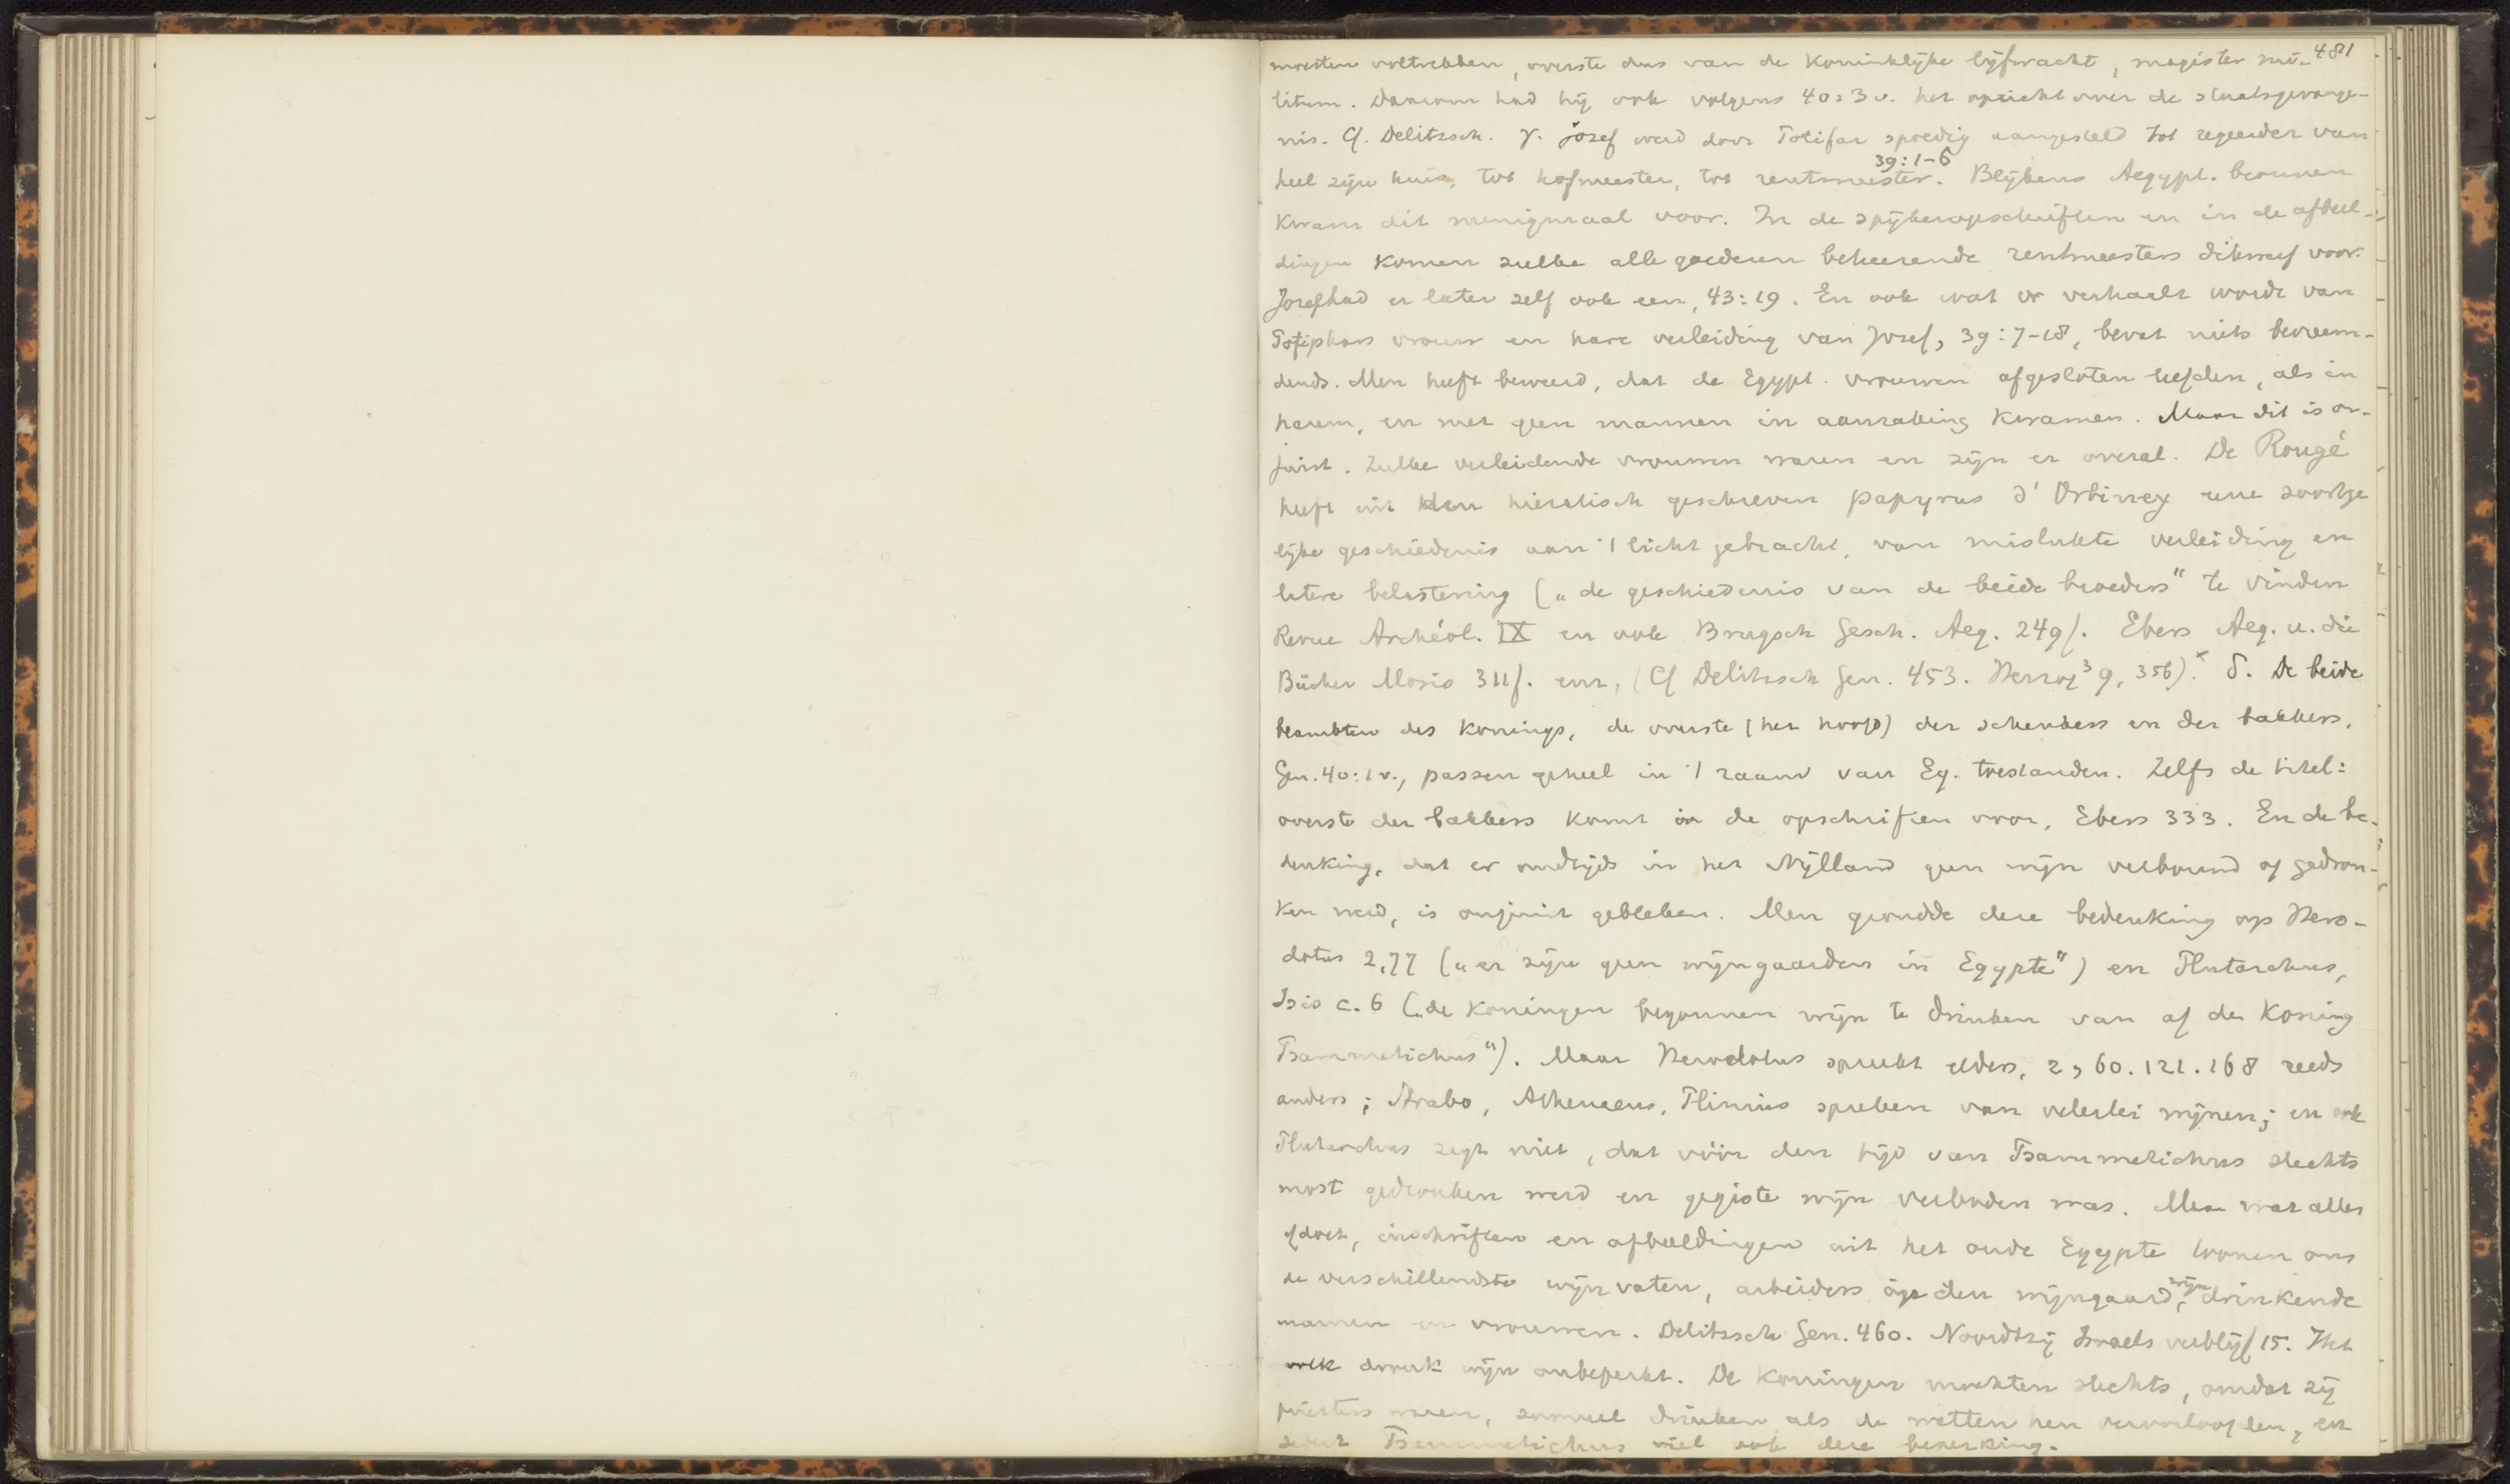 481
moesten voltrekken, overste dus van de koninklijke lijfwacht, magister mi-
litum. Daarom had hij ook volgens 40:3 v. het opzicht over de staatsgevange-
nis. Cf. Delitzsch. γ. Jozef werd door Potifar spoedig aangesteld tot regeerder van
39:1-6
heel zijn huis, tot hofmeester, tot rentmeester. Blijkens Aegypt. bronnen
kwam dit menigmaal voor. In de spijkeropschriften en in de afbeel-
dingen komen zulke alle goederen beheerende rentmeesters dikwerf voor.
Jozef had er later zelf ook een, 43:19. En ook wat er verhaald wordt van
Potiphars vrouw en hare verleiding van Jozef, 39:7-18, bevat niets bevreem-
dends. Men heeft beweerd, dat de Egypt. vrouwen afgesloten leefden, als in
harem, en met geen mannen in aanraking kwamen. Maar dit is on-
juist. Zulke verleidende vrouwen waren en zijn er overal. De Rougé
heeft uit den hieratisch geschreven papyrus d'Orbiney eene soortge
lijke geschiedenis aan 't licht gebracht, van mislukte verleiding en
latere belastering („de geschiedenis van de beide broeders" te vinden
Revue Archéol. IX en ook Brugsch Gesch. Aeg. 249f. Ebers Aeg. u. die
Bücher Mosis 311f. enz, (Cf Delitzsch Gen. 453. Herzog³ 9, 356).× δ. De beide
beambten des konings, de overste (het hoofd) der schenkers en der bakkers,
Gen. 40:1 v., passen geheel in 't raam van Eg. toestanden. Zelfs de titel:
overste der bakkers komt in de opschriften voor, Ebers 333. En de be-
denking, dat er oudtijds in het Nijlland geen wijn verbouwd of gedron-
ken werd, is onjuist gebleken. Men grondde deze bedenking op Hero-
dotus 2,77 („er zijn geen wijngaarden in Egypte") en Plutarchus,
Isis c. 6 („de koningen begonnen wijn te drinken van af den koning
Psammetichus"). Maar Herodotus spreekt elders, 2, 60. 121. 168 reeds
anders; Strabo, Athenaeus, Plinius spreken van velerlei wijnen; en ook
Plutarchus zegt niet, dat vóór den tijd van Psammetichus slechts
most gedronken werd en gegiste wijn verboden was. Maar wat alles
afdoet, inschriften en afbeeldingen uit het oude Egypte toonen ons
de verschillendste wijnvaten, arbeiders op den wijngaard, wijn drinkende
mannen en vrouwen. Delitzsch Gen. 460. Noordtzij Israels verblijf 15. Het
volk dronk wijn onbeperkt. De koningen mochten slechts, omdat zij
priesters waren, zooveel drinken als de wetten hen veroorloofden, en
sedert Psammetichus viel ook deze beperking.